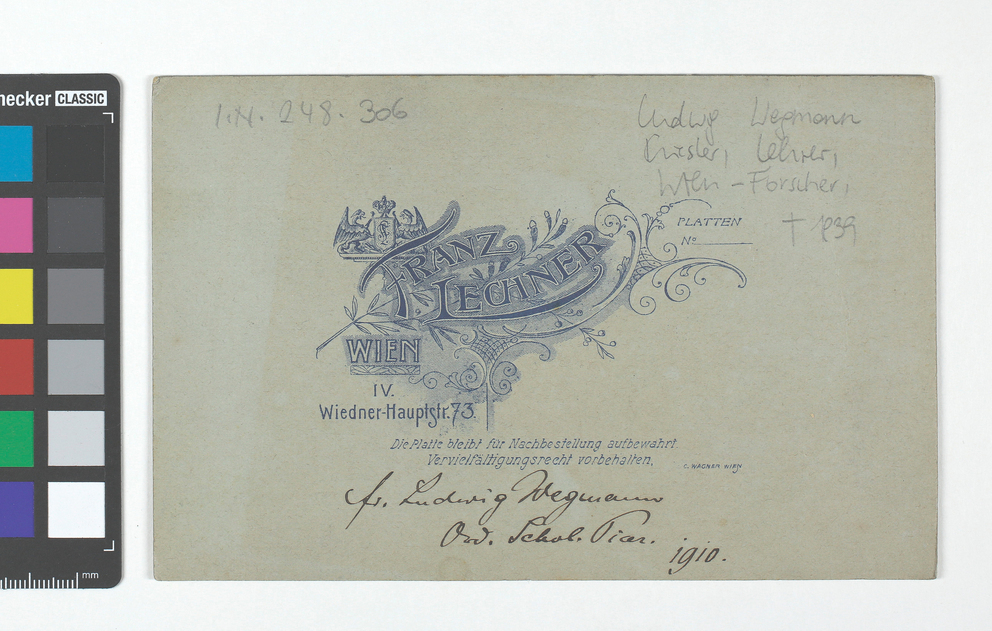 hecker CLASSIC
I.N. 248.306
Ludwig Wegmann
Priester, Lehrer,
Wien-Forscher,
† 1939
PLATTEN
No
FRANZ
LECHNER
WIEN
IV.
Wiedner-Hauptstr. 73.
Die Platte bleibt für Nachbestellung aufbewahrt.
Vervielfältigungsrecht vorbehalten.
C. WAGNER WIEN
fr. Ludwig Wegmann
Ord. Schol. Piar.
1910.
mm